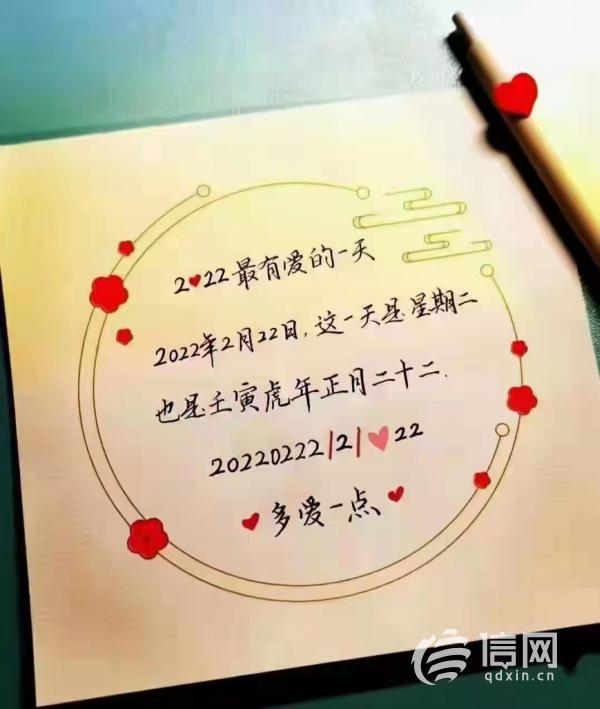 2❤22最有爱的一天
2022年2月22日，这一天是星期二
也是壬寅虎年正月二十二.
20220222|2|❤22
❤多爱一点❤
信网
qdxin.cn